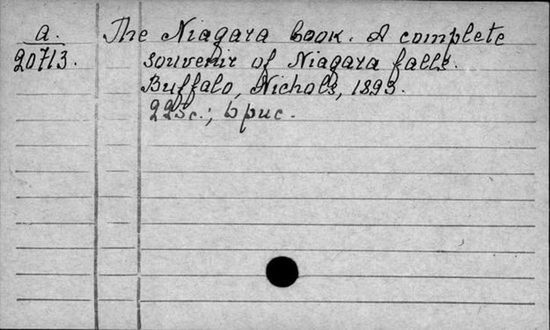 a.
20713.
The Niagara book. A complete
souvenir of Niagara falls.
Buffalo, Nichols, 1893.
225с.; 6 рис.